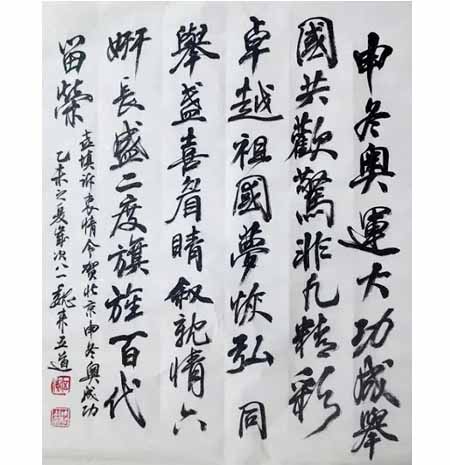 申冬奥運大功成舉
國共歡驚非凡精彩
卓越祖國夢恢弘 同
舉盞喜眉睛叙 情六
妍長盛二度旗旌百代
留榮
填訴衷情令賀北京申冬奥成功
乙未之夏歲次八一魏来五道